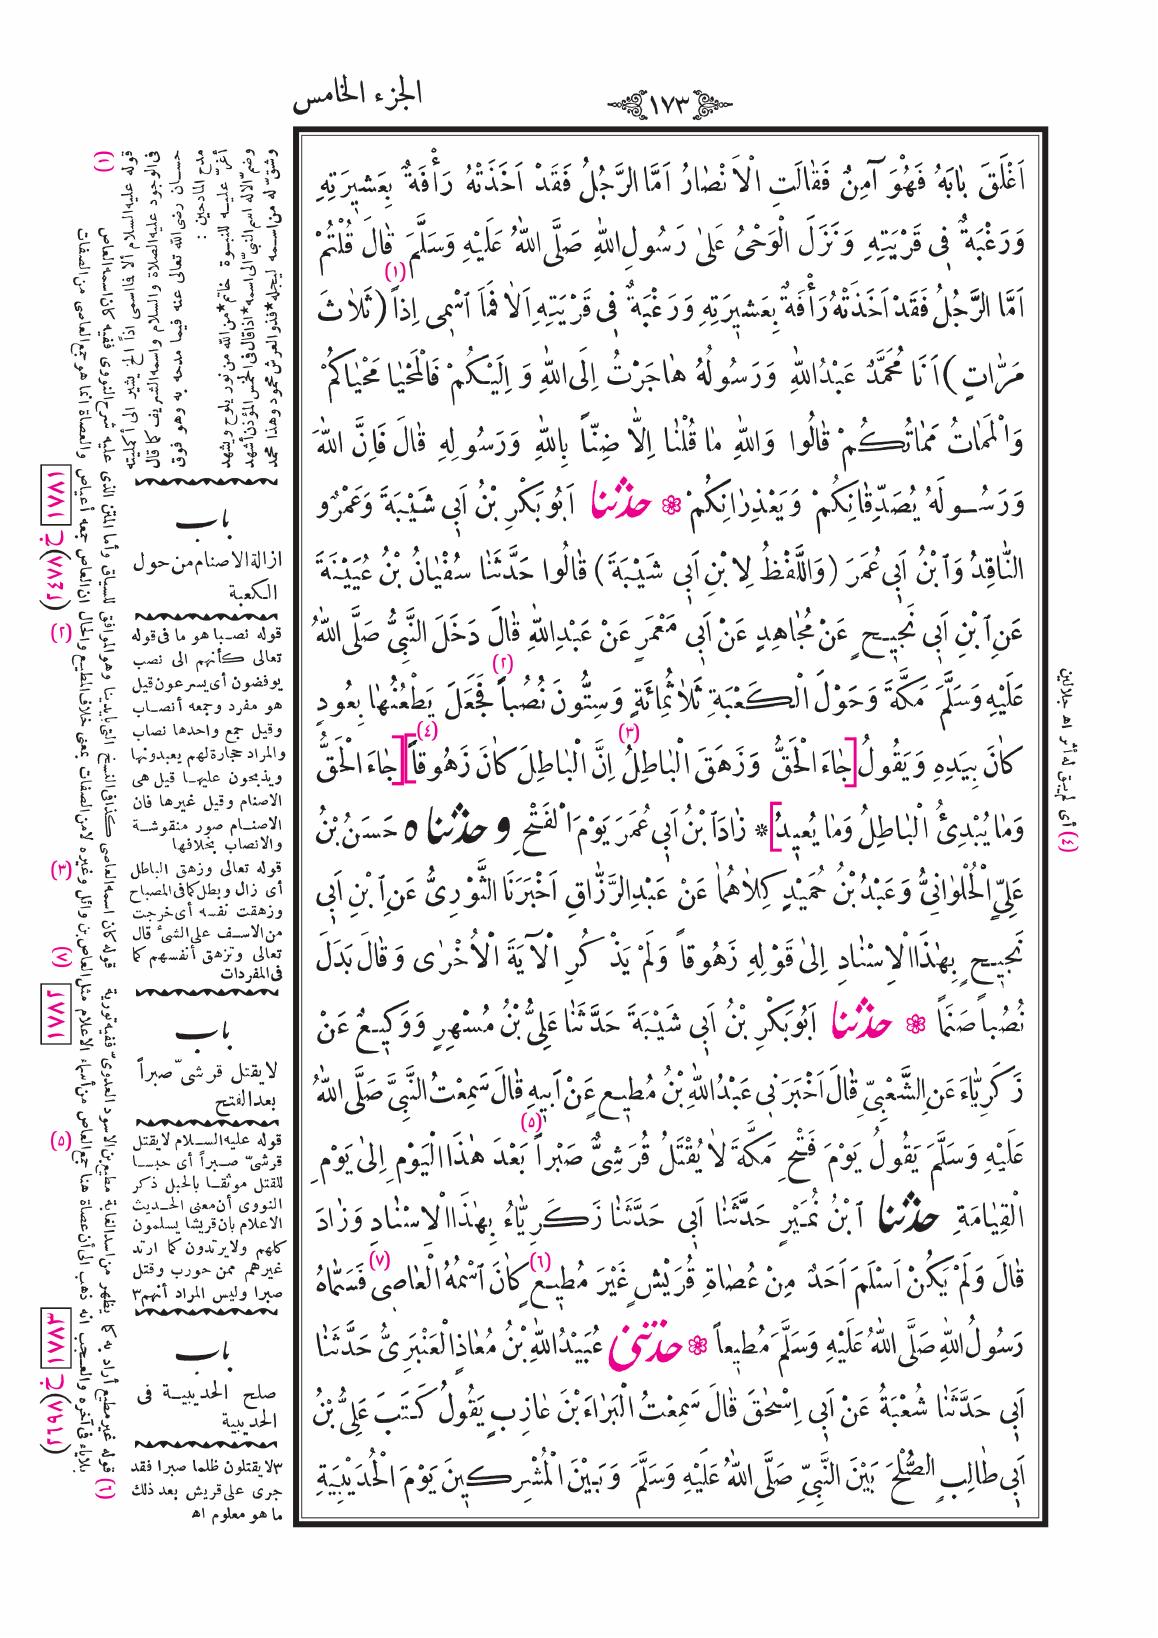 الجزء الخامس
١٧٣
اَغْلَقَ بَابَهُ فَهُوَ آمِنٌ فَقَالَتِ الْاَنْصَارُ اَمَّا الرَّجُلُ فَقَدْ اَخَذَتْهُ رَأْفَةٌ بِعَشِيرَتِهِ
وَرَغْبَةٌ فِي قَرْيَتِهِ وَنَزَلَ الْوَحْيُ عَلىٰ رَسُولِ اللّٰهِ صَلَّى اللّٰهُ عَلَيْهِ وَسَلَّمَ قَالَ قُلْتُمْ
اَمَّا الرَّجُلُ فَقَدْ اَخَذَتْهُ رَأْفَةٌ بِعَشِيرَتِهِ وَرَغْبَةٌ فِي قَرْيَتِهِ اَلَا فَمَا اَسْمِى اِذاً (١) (ثَلَاثَ
مَرَّاتٍ) اَنَا مُحَمَّدٌ عَبْدُ اللّٰهِ وَرَسُولُهُ هَاجَرْتُ اِلَى اللّٰهِ وَاِلَيْكُمْ فَالْمَحْيَا مَحْيَاكُمْ
وَالْمَمَاتُ مَمَاتُكُمْ قَالُوا وَاللّٰهِ مَا قُلْنَا اِلَّا ضِنّاً بِاللّٰهِ وَرَسُولِهِ قَالَ فَاِنَّ اللّٰهَ
وَرَسُولَهُ يُصَدِّقَانِكُمْ وَيَعْذِرَانِكُمْ ❀ حدثنا اَبُوبَكْرِ بْنُ اَبِي شَيْبَةَ وَعَمْرٌو
النَّاقِدُ وَابْنُ اَبِي عُمَرَ (وَاللَّفْظُ لِابْنِ اَبِي شَيْبَةَ) قَالُوا حَدَّثَنَا سُفْيَانُ بْنُ عُيَيْنَةَ
عَنِ ابْنِ اَبِي نَجِيحٍ عَنْ مُجَاهِدٍ عَنْ اَبِي مَعْمَرٍ عَنْ عَبْدِ اللّٰهِ قَالَ دَخَلَ النَّبِيُّ صَلَّى اللّٰهُ
عَلَيْهِ وَسَلَّمَ مَكَّةَ وَحَوْلَ الْكَعْبَةِ ثَلَاثُمِائَةٍ وَسِتُّونَ نُصُباً (٢) فَجَعَلَ يَطْعُنُهَا بِعُودٍ
كَانَ بِيَدِهِ وَيَقُولُ [جَاءَ الْحَقُّ وَزَهَقَ الْبَاطِلُ (٣) اِنَّ الْبَاطِلَ كَانَ زَهُوقاً] (٤) [جَاءَ الْحَقُّ
وَمَا يُبْدِئُ الْبَاطِلُ وَمَا يُعِيدُ] * زَادَ ابْنُ اَبِي عُمَرَ يَوْمَ الْفَتْحِ و حدثنا ه حَسَنُ بْنُ
عَلِيٍّ الْحُلْوَانِيُّ وَعَبْدُ بْنُ حُمَيْدٍ كِلَاهُمَا عَنْ عَبْدِ الرَّزَّاقِ اَخْبَرَنَا الثَّوْرِىُّ عَنِ ابْنِ اَبِي
نَجِيحٍ بِهٰذَا الْاِسْنَادِ اِلىٰ قَوْلِهِ زَهُوقاً وَلَمْ يَذْكُرِ الْآيَةَ الْاُخْرٰى وَقَالَ بَدَلَ
نُصُباً صَنَماً ❀ حدثنا اَبُوبَكْرِ بْنُ اَبِي شَيْبَةَ حَدَّثَنَا عَلِيُّ بْنُ مُسْهِرٍ وَوَكِيعٌ عَنْ
زَكَرِيَّاءَ عَنِ الشَّعْبِيِّ قَالَ اَخْبَرَنِي عَبْدُ اللّٰهِ بْنُ مُطِيعٍ عَنْ اَبِيهِ قَالَ سَمِعْتُ النَّبِيَّ صَلَّى اللّٰهُ
عَلَيْهِ وَسَلَّمَ يَقُولُ يَوْمَ فَتْحِ مَكَّةَ لَا يُقْتَلُ قُرَشِيٌّ صَبْراً (٥) بَعْدَ هٰذَا الْيَوْمِ اِلىٰ يَوْمِ
الْقِيَامَةِ حدثنا ابْنُ نُمَيْرٍ حَدَّثَنَا اَبِي حَدَّثَنَا زَكَرِيَّاءُ بِهٰذَا الْاِسْنَادِ وَزَادَ
قَالَ وَلَمْ يَكُنْ اَسْلَمَ اَحَدٌ مِنْ عُصَاةِ قُرَيْشٍ غَيْرَ مُطِيعٍ (٦) كَانَ اسْمُهُ الْعَاصِى (٧) فَسَمَّاهُ
رَسُولُ اللّٰهِ صَلَّى اللّٰهُ عَلَيْهِ وَسَلَّمَ مُطِيعاً ❀ حدثنى عُبَيْدُ اللّٰهِ بْنُ مُعَاذٍ الْعَنْبَرِىُّ حَدَّثَنَا
اَبِي حَدَّثَنَا شُعْبَةُ عَنْ اَبِي اِسْحٰقَ قَالَ سَمِعْتُ الْبَرَاءَ بْنَ عَازِبٍ يَقُولُ كَتَبَ عَلِيُّ بْنُ
اَبِي طَالِبٍ الصُّلْحَ بَيْنَ النَّبِيِّ صَلَّى اللّٰهُ عَلَيْهِ وَسَلَّمَ وَبَيْنَ الْمُشْرِكِينَ يَوْمَ الْحُدَيْبِيَةِ
(١)
قوله عليه السلام ألا فما اسمى اذاً الخ يشير الى أكمليته
فى الوجود عليه الصلاة والسلام واسمه الشريف كما قال
حسان رضى الله تعالى عنه فيما مدحه به وهو فوق
مدح المادحين :
أغرّ عليه للنبوة خاتم * من الله من نور يلوح ويشهد
وضمّ الاله اسم النبىّ الى اسمه * اذا قال فى الخمس المؤذن أشهد
وشقّ له من اسمه ليجله * فذو العرش محمود وهذا محمد
١٧٨١
ج(٧٨٤د)
باب
ازالة الاصنام من حول
الكعبة
(٢)
قوله نصبا هو ما فى قوله
تعالى كأنهم الى نصب
يوفضون أى يسرعون قيل
هو مفرد وجمعه أنصاب
وقيل جمع واحدها نصاب
والمراد حجارة لهم يعبدونها
ويذبحون عليها قيل هى
الاصنام وقيل غيرها فان
الاصنام صور منقوشة
والانصاب بخلافها
(٣)
قوله تعالى وزهق الباطل
أى زال وبطل كما فى المصباح
وزهقت نفسه أى خرجت
من الاسف على الشئ قال
تعالى وتزهق أنفسهم كما
فى المفردات
١٧٨٢
باب
لا يقتل قرشىّ صبراً
بعد الفتح
(٥)
قوله عليه السلام لا يقتل
قرشىّ صبراً أى حبسا
للقتل موثقا بالحبل ذكر
النووى أن معنى الحديث
الاعلام بان قريشا يسلمون
كلهم ولا يرتدون كما ارتد
غيرهم ممن حورب وقتل
صبرا وليس المراد أنهم ٣
باب
صلح الحديبية فى
الحديبية
٣ لا يقتلون ظلما صبرا فقد
جرى على قريش بعد ذلك
ما هو معلوم اه
١٧٨٣
(٤) أى لم يبق له أثر اه جلالين
(٦)
قوله غير مطيع أراد به كما يظهر من اسد الغابة مطيع بن الاسود العدوىّ ففيه تورية
(٧)
قوله كان اسمه العاصى كذا فى النسخ التى بايدينا وهو الموافق للسياق وأما المتن الذى عليه شرح النووى ففيه كان اسمه العاص